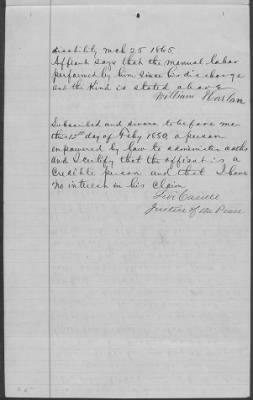 disability Mch 25 1865
Affiant says that the manual labor
performed by him since his discharge
and the Kind is stated above
William
Subscribed and sworn to before me
this day of Feby 1880, a person
empowered by law to administer oaths
and I certify that the affiant is a
Credible person and that I have
no interest in his claim
Levi
Justice of the Peace